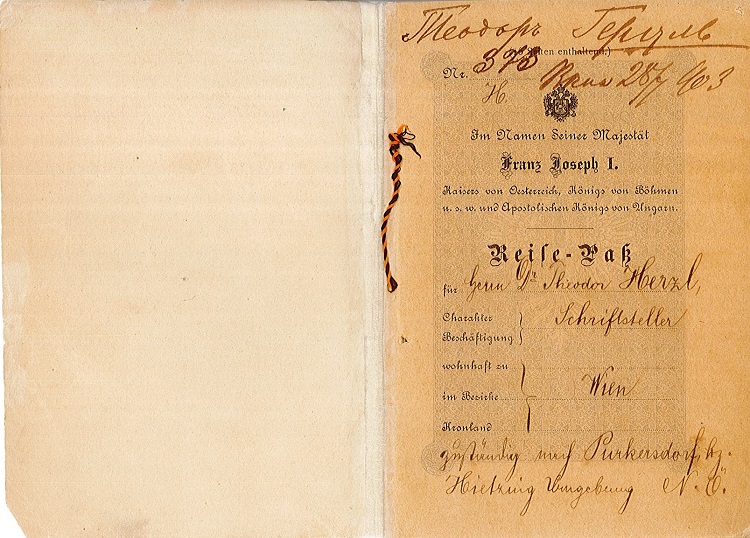 Теодоръ Герцль
Seiten enthaltend.)
Nr. 373
H.
Im Namen Seiner Majestät
Franz Joseph I.
Kaisers von Oesterreich, Königs von Böhmen
u. s. w. und Apostolischen Königs von Ungarn.
Reise-Paß
für Herrn Dr Theodor Herzl,
Charakter Schriftsteller
Beschäftigung
wohnhaft zu
im Bezirke Wien
Kronland
zuständig nach Purkersdorf, Bz.
Hietzing Umgebung N. Ö.